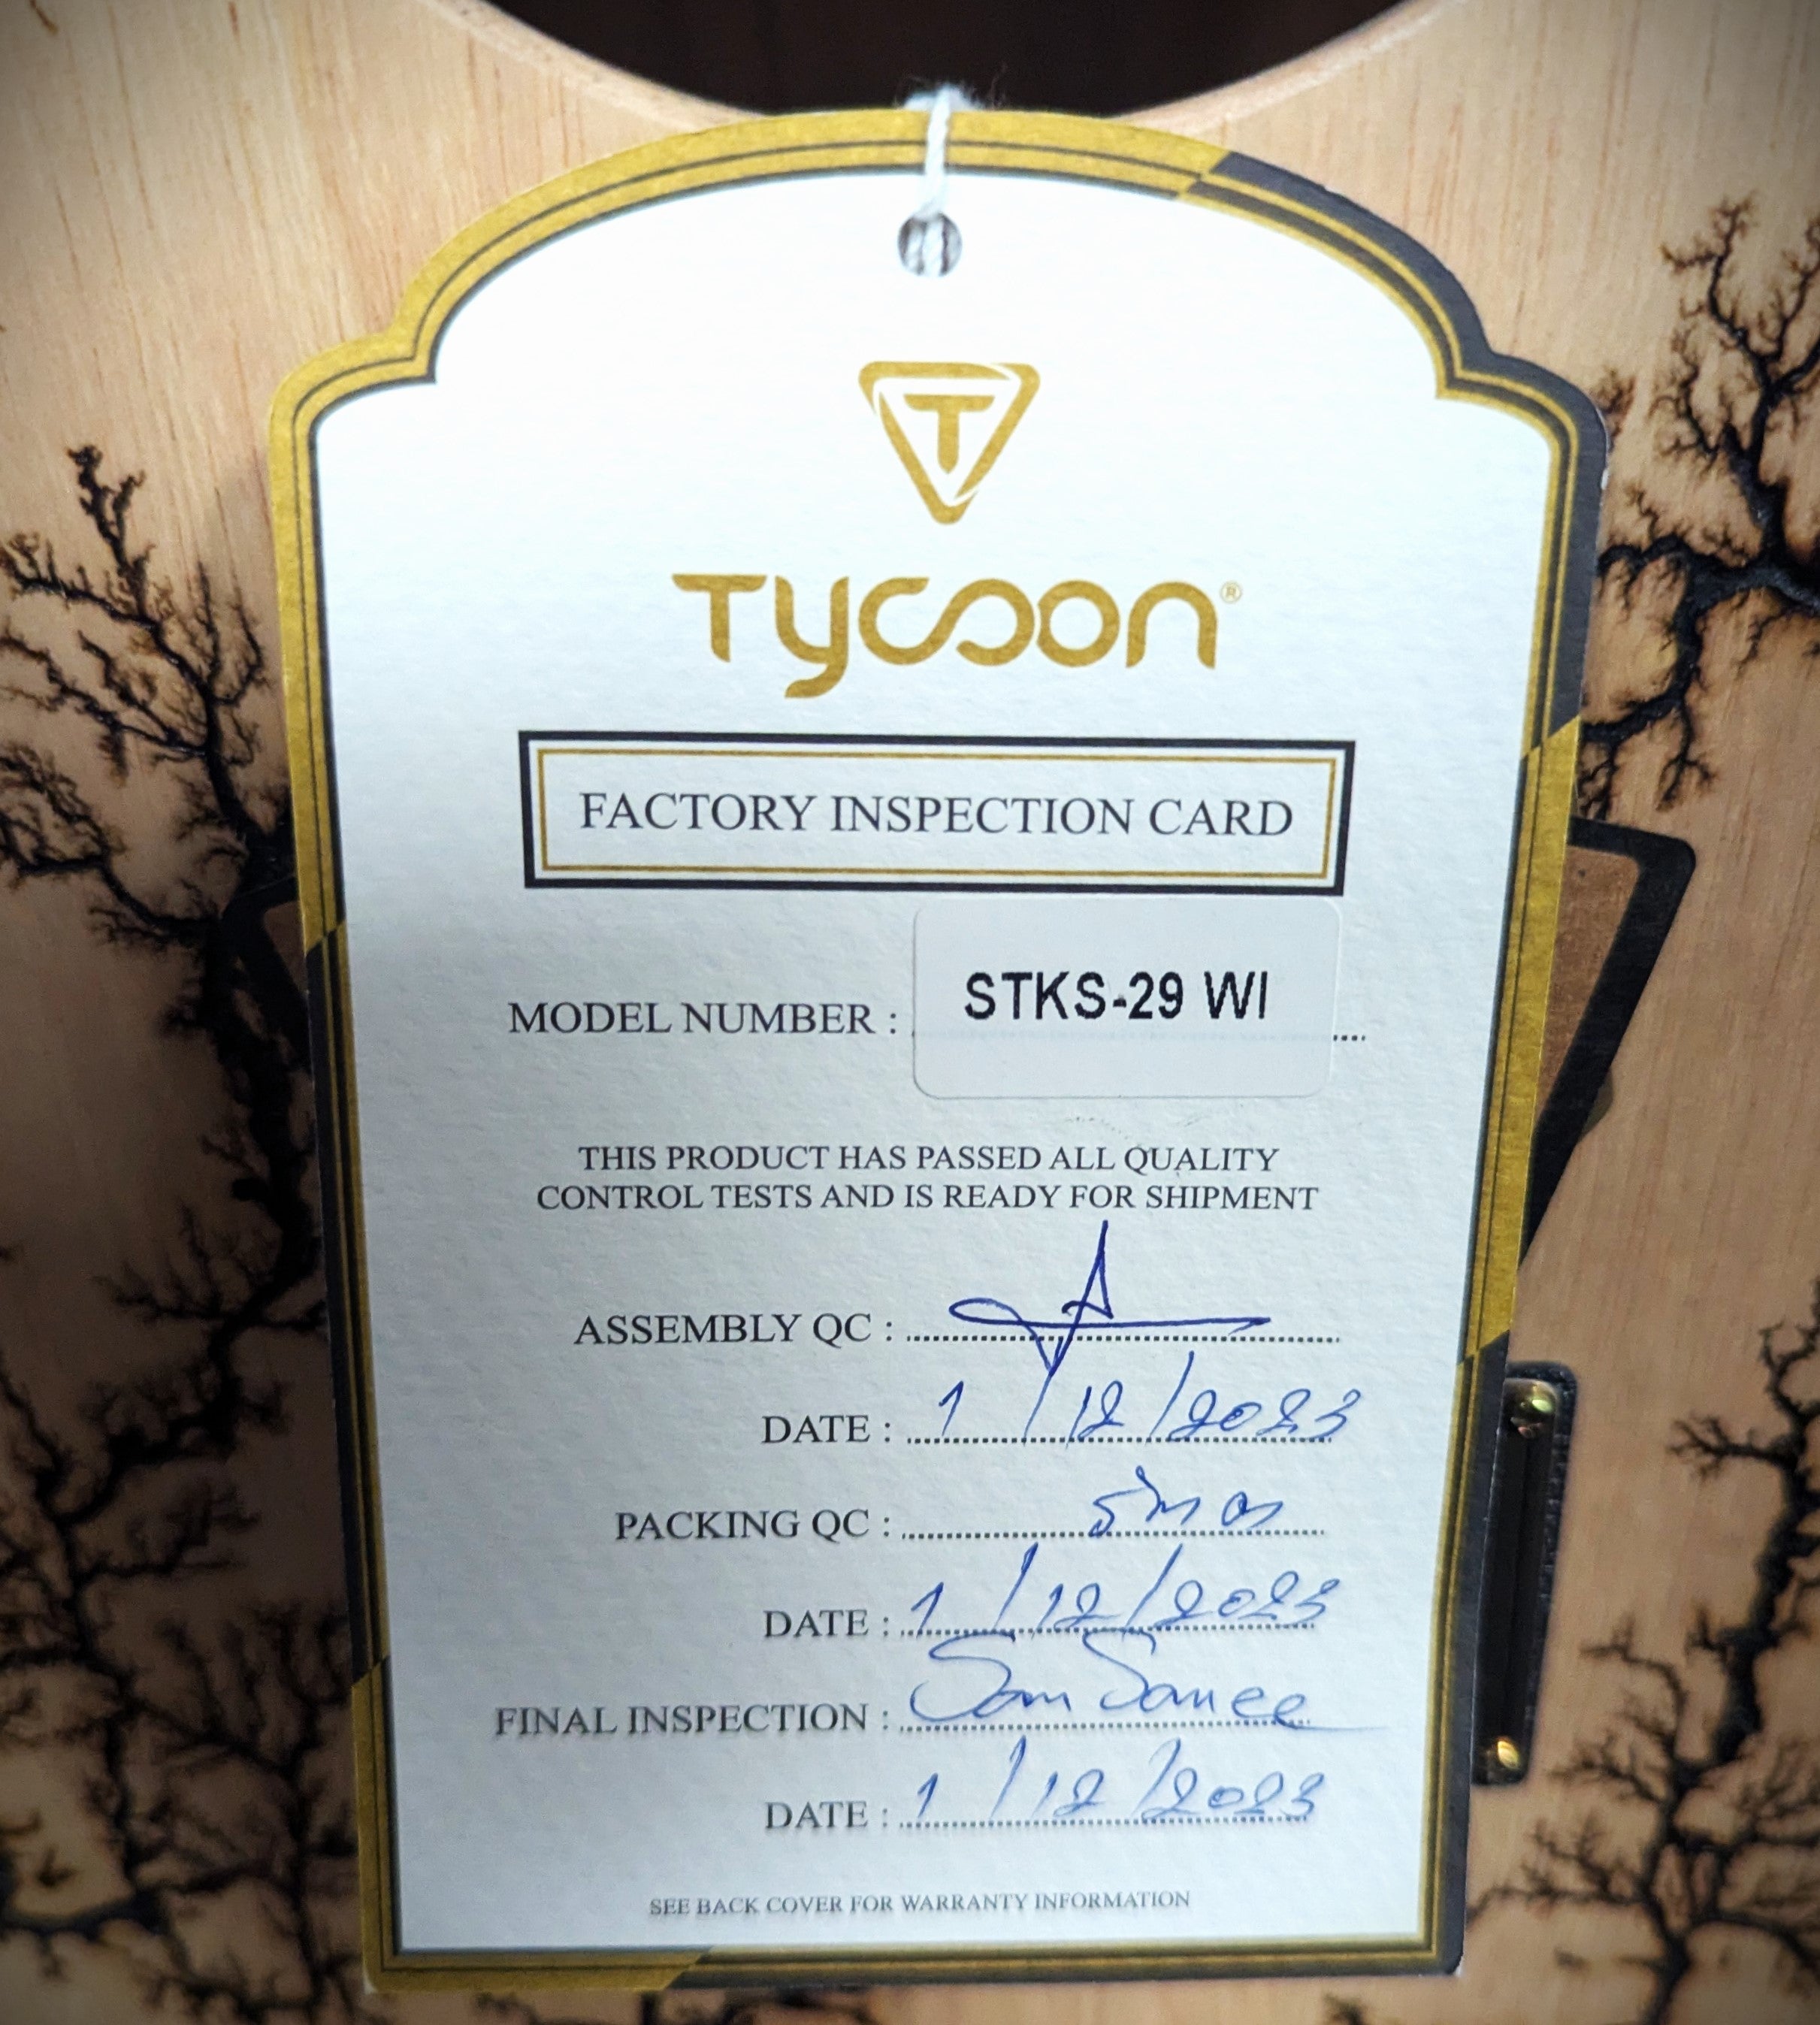 T
Tycoon®
FACTORY INSPECTION CARD
MODEL NUMBER : STKS-29 WI
THIS PRODUCT HAS PASSED ALL QUALITY
CONTROL TESTS AND IS READY FOR SHIPMENT
ASSEMBLY QC :
DATE : 1/12/2023
PACKING QC :
DATE : 1/12/2023
FINAL INSPECTION :
DATE : 1/12/2023
SEE BACK COVER FOR WARRANTY INFORMATION